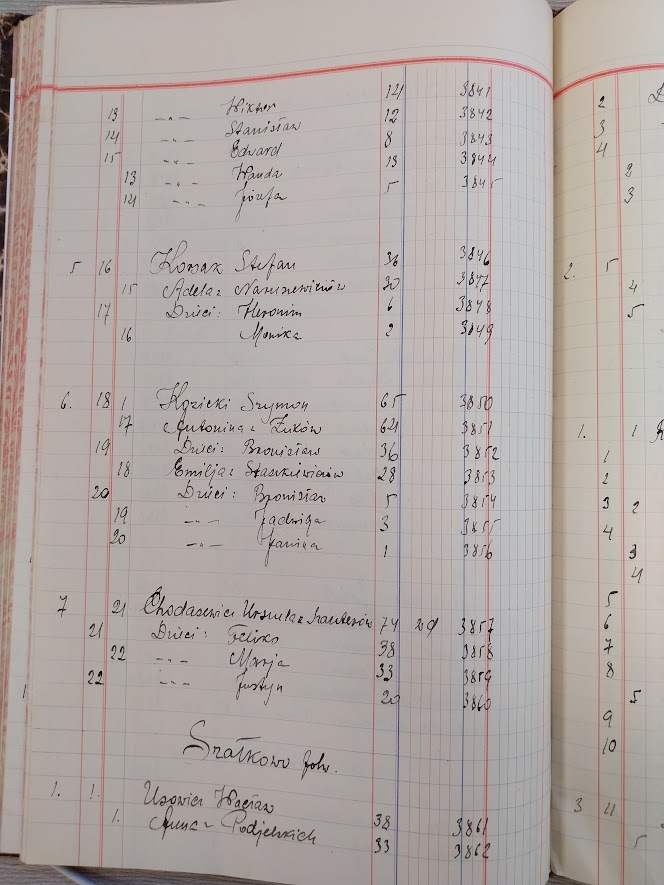 14 3841
13 —„— Wiktor 12 3842
14 —„— Stanisław 8 3843
15 —„— Edward 13 3844
13 —„— Wanda 5 3845
14 —„— Józefa
5 16 Stefan 36 3846
15 Adela z Naruszewiczów 30 3847
17 Dzieci: Heronim 6 3848
16 Monika 2 3849
6. 18 1 Kozicki Szymon 65 3850
17 Antonina z Żuków 64 3851
19 Dzieci: Bronisław 36 3852
18 Emilja z Staszkiewiczów 28 3853
20 Dzieci: Bronisław 5 3854
19 —„— Jadwiga 3 3855
20 —„— Janina 1 3856
7 21 Chodasewicz Urszula z 74 3857
21 Dzieci: Feliks 38 3858
22 —„— Marja 33 3859
22 —„— Justyn 20 3860
Szałkowo folw.
1. 1. Usowicz Wacław 38 3861
1. Anna z 33 3862
2
3
4
2
3
2. 5
4
5
1. 1
1
2
3 2
4
3
4
5
6
7
8
5
9
10
3 11
5